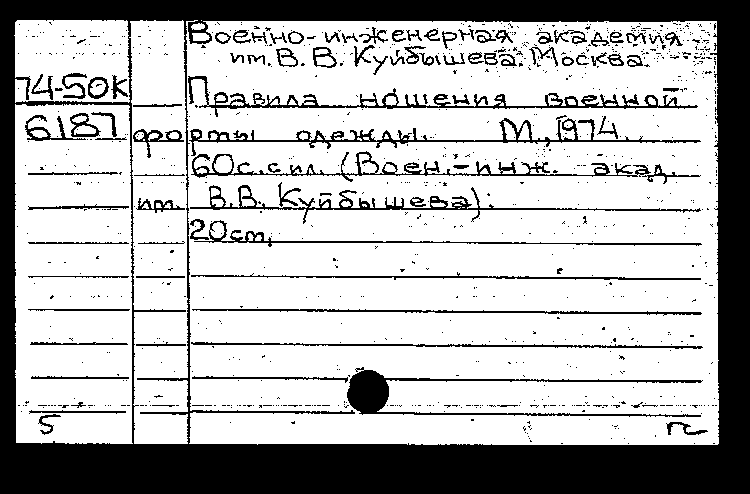 Военно-инженерная академия
им. В. В. Куйбышева. Москва.
74-50К Правила ношения военной
6187 формы одежды. М., 1974.
60с. с ил. (Воен.-инж. акад.
им. В.В. Куйбышева).
20 cm.
5